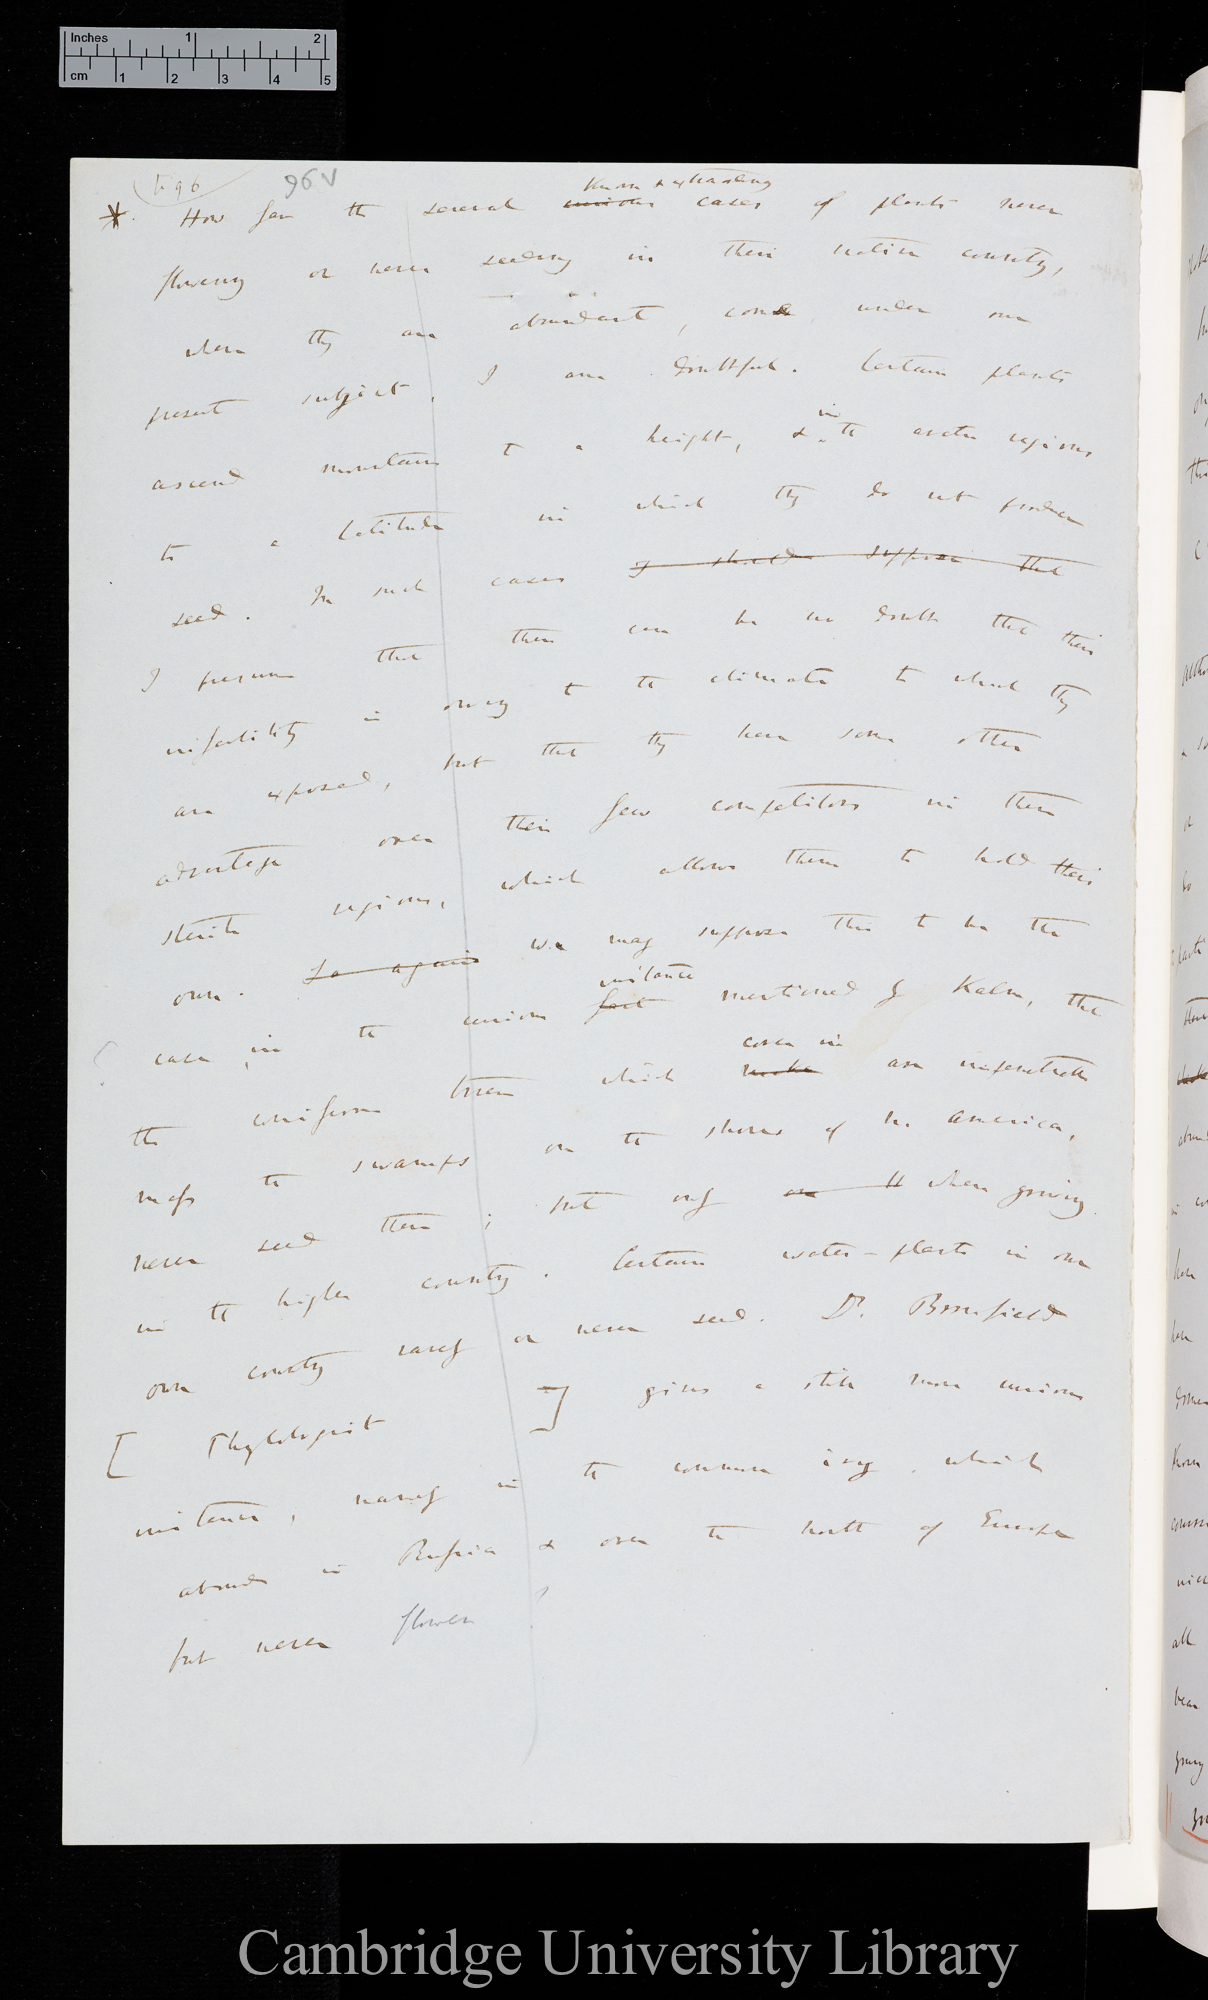 Inches 1 2
cm 1 2 3 4 5
to 96
96 v
known & extraordinary
*. How far the several curious cases of plants never
flowering or never seeding in their native country,
where they are abundant, come under our
present subject, I am doubtful. Certain plants
in
ascend mountains to a height, & the arctic regions
to a latitude in which they do not produce
seed. In such cases I should suppose that
I presume that there can be no doubt that their
infertility is owing to the climate to which they
are exposed, but that they have some other
advantage over their few competitors in these
sterile regions, which allows them to hold their
own. So again We may suppose this to be the
instance
case in the curious fact mentioned by Kalm, that
cover in
the coniferous trees which make an impenetrable
mass the swamps on the shores of N. America,
never seed there; but only on the when growing
in the higher country. Certain water-plants in our
own country rarely or never seed. Dr. Bromfield
[ Phytologist ] gives a still more curious
instance, namely in the common ivy, which
abounds in Russia & over the north of Europe
but never flowers
Cambridge University Library